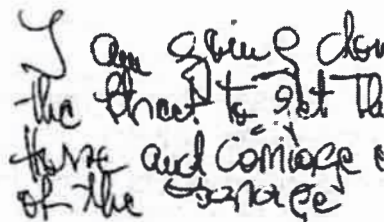 I am going down
the street to get the
horse and carriage o
of the